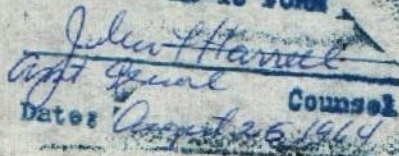 TO FORM
John H Harrell
Asst General
Counsel
Date: August 25 1964